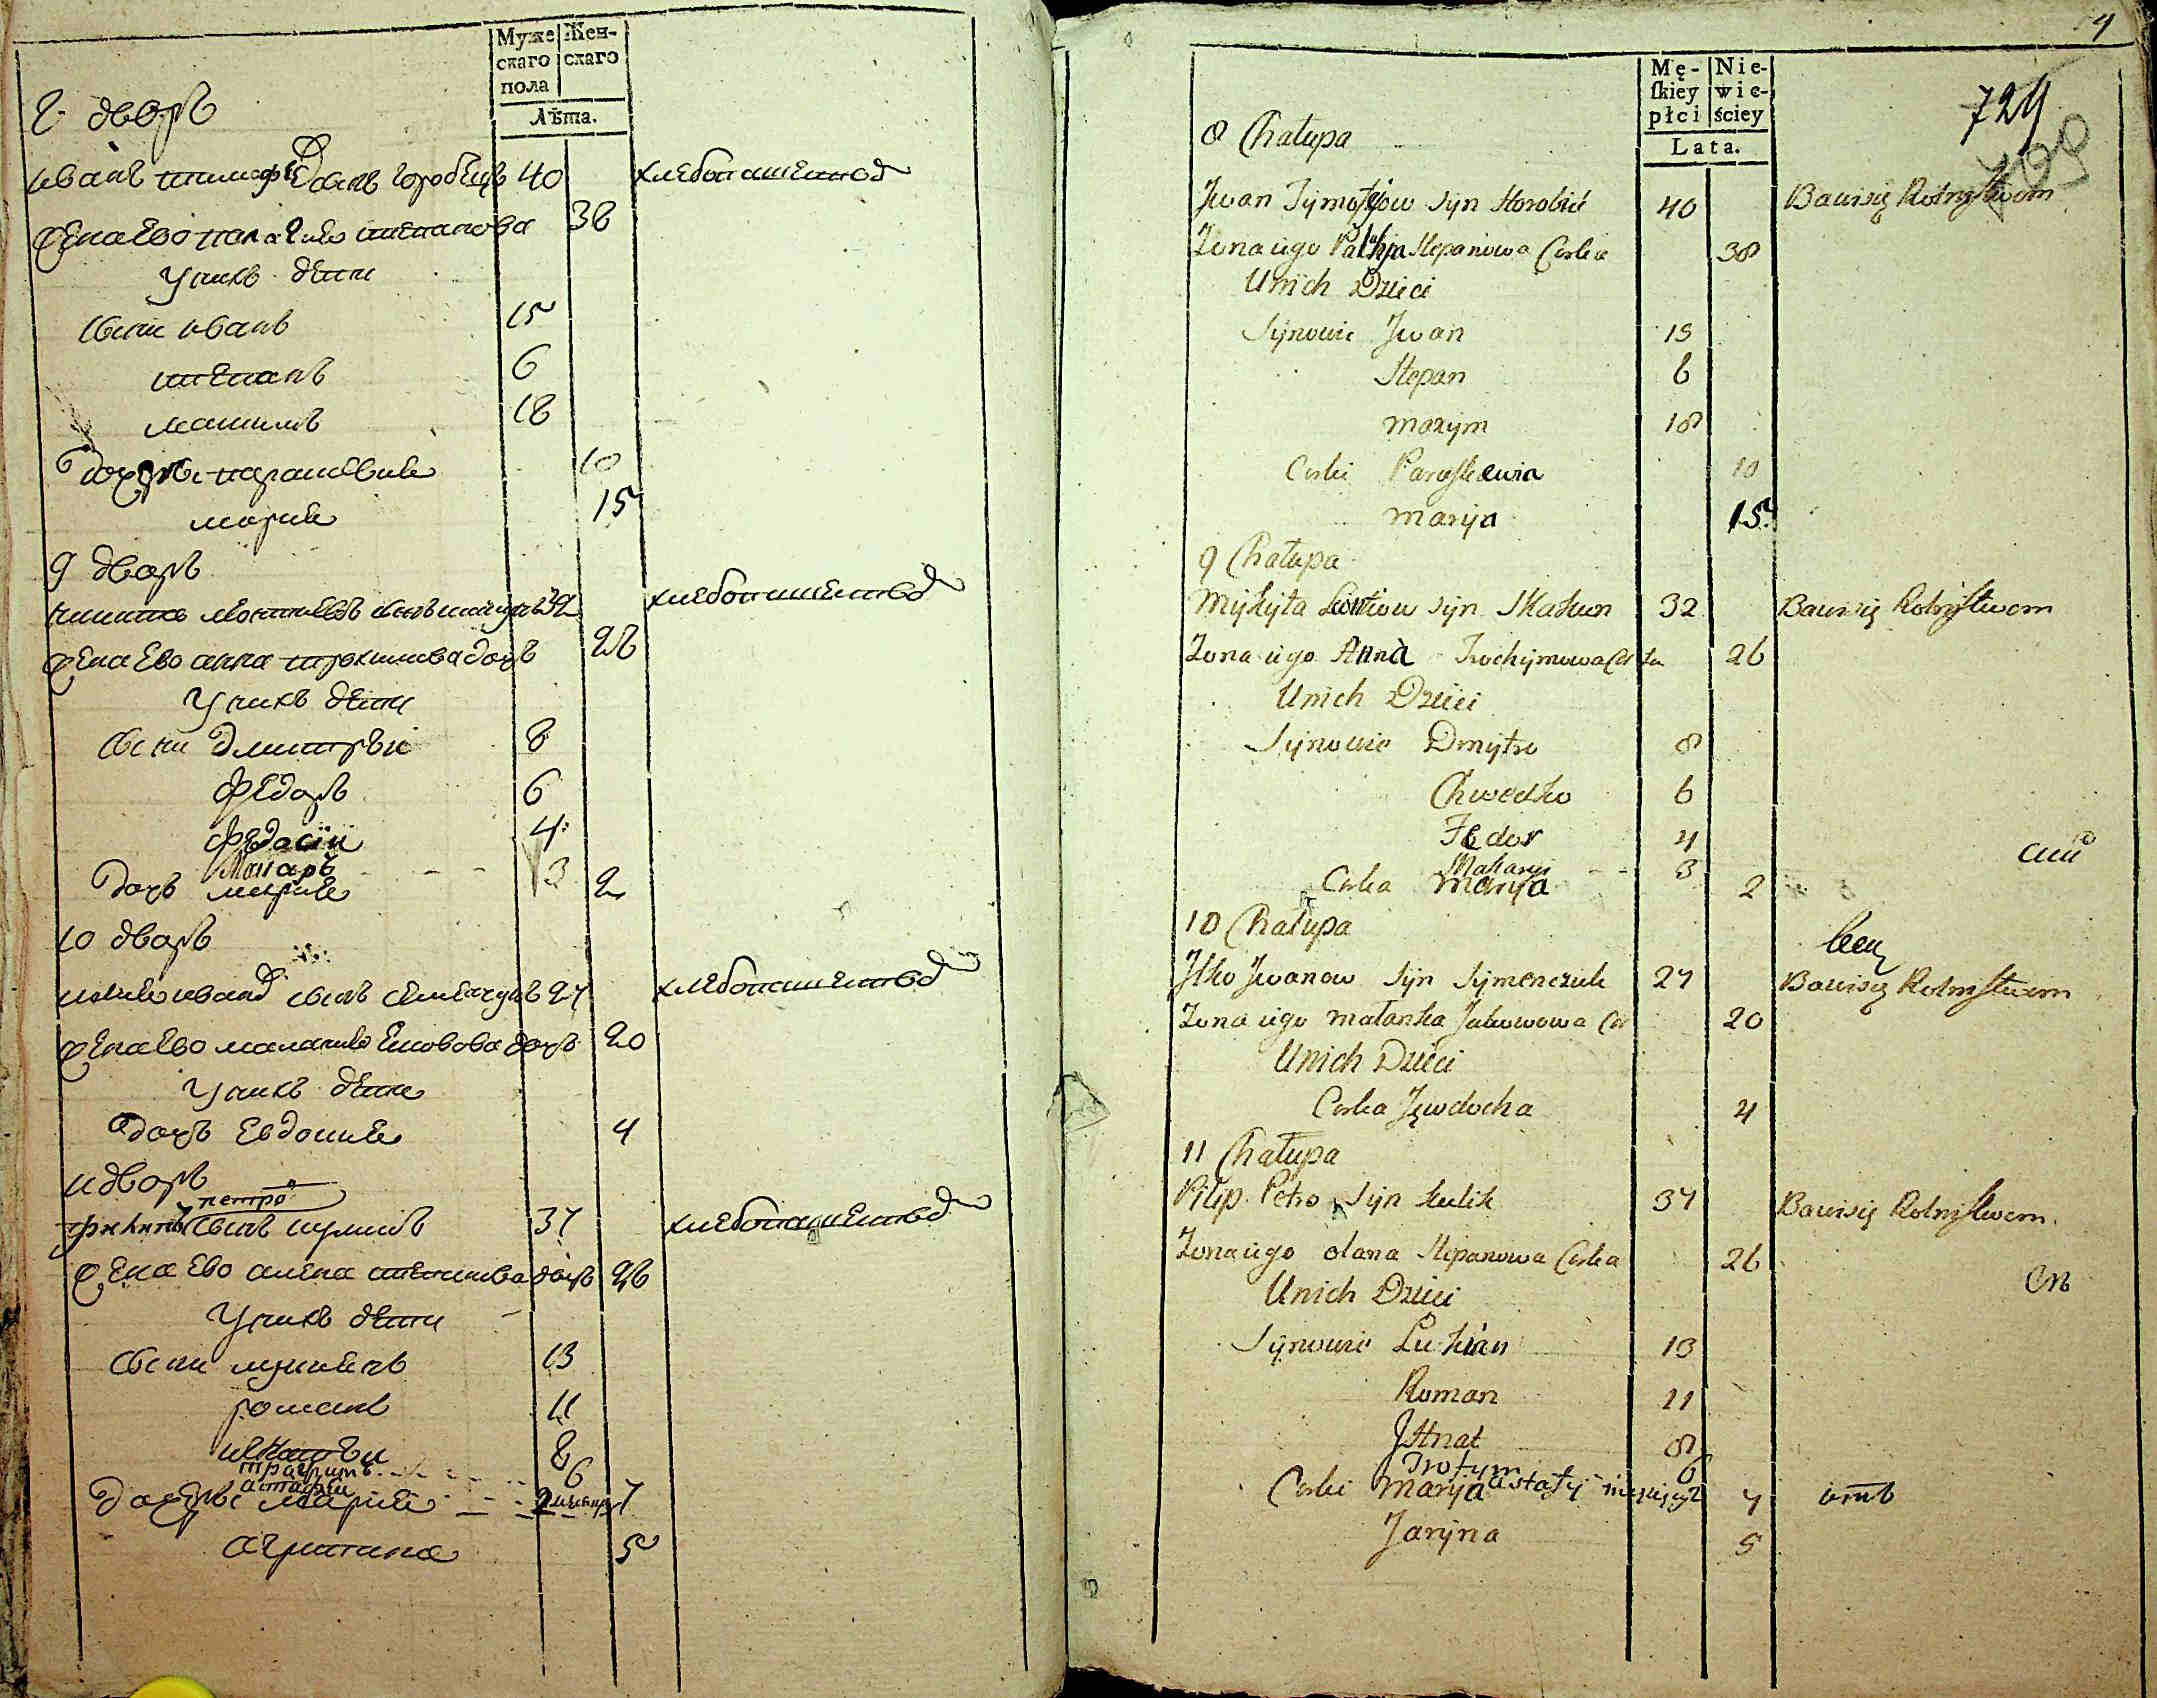 Муже
скаго
пола
Жен-
скаго
Лѣта.
8. дворъ
иванъ тимофѣевъ сынъ горобецъ 40 хлебопашеством
жена ево палагия степанова 38
у нихъ дети
сыни иванъ 15
степанъ 6
максимъ 18
дочери параскевия 10
мария 15
9 дворъ
никита леонтиевъ сынъ 32 хлебопашеством
жена ево анна трохимова дочь 26
у нихъ дети
сыни дмитрѣи 8
федоръ 6
4
Макаръ 3
дочь мария 2
10 дворъ
илия иванов сынъ семенчукъ 27 хлебопашеством
жена ево малания дочь 20
у нихъ дети
дочь евдокия 4
11 дворъ
петро
филипъ сынъ куликъ 37 хлебопашеством
жена ево алена степанова дочь 26
у нихъ дети
сыни лукиянъ 13
романъ 11
8
трофимъ 6
астафии 2
дочери мария 7
агрипина 5
4
Mę-
skiey
płci
Nie-
wie-
ściey
Lata.
729
8 Chałupa
Jwan Tymofijow Syn Horobeć 40 Bawi się Rolnistwem
Zona iego Palahja Stepanowa Corka 38
Unich Dzieci
Synowie Jwan 15
Stepan 6
Maxym 18
Corki Paraskewia 10
Marija 15
9 Chałupa
Mykyta Leontiow Syn Skakun 32 Bawi się Rolnistwem
Zona iego Anna Trochymowa Corka 26
Unich Dzieci
Synowie Dmytro 8
Chwedko 6
Fedor 4
Makary 3
Corka Marya 2
10 Chałupa
Jlko Jwanow Syn Symenczuk 27 Bawi się Rolnistwem
Zona iego Małanka Jakowowa Cor 20
Unich Dzieci
Corka Jewdocha 4
11 Chałupa
Pilip Petro Syn Kulik 37 Bawi się Rolnistwem
Zona iego Olana Stepanowa Corka 26
Unich Dzieci
Synowie Lukian 13
Roman 11
Jhnat 8
Trofym 6
Astafy
Corki Marija 7
Jaryna 5